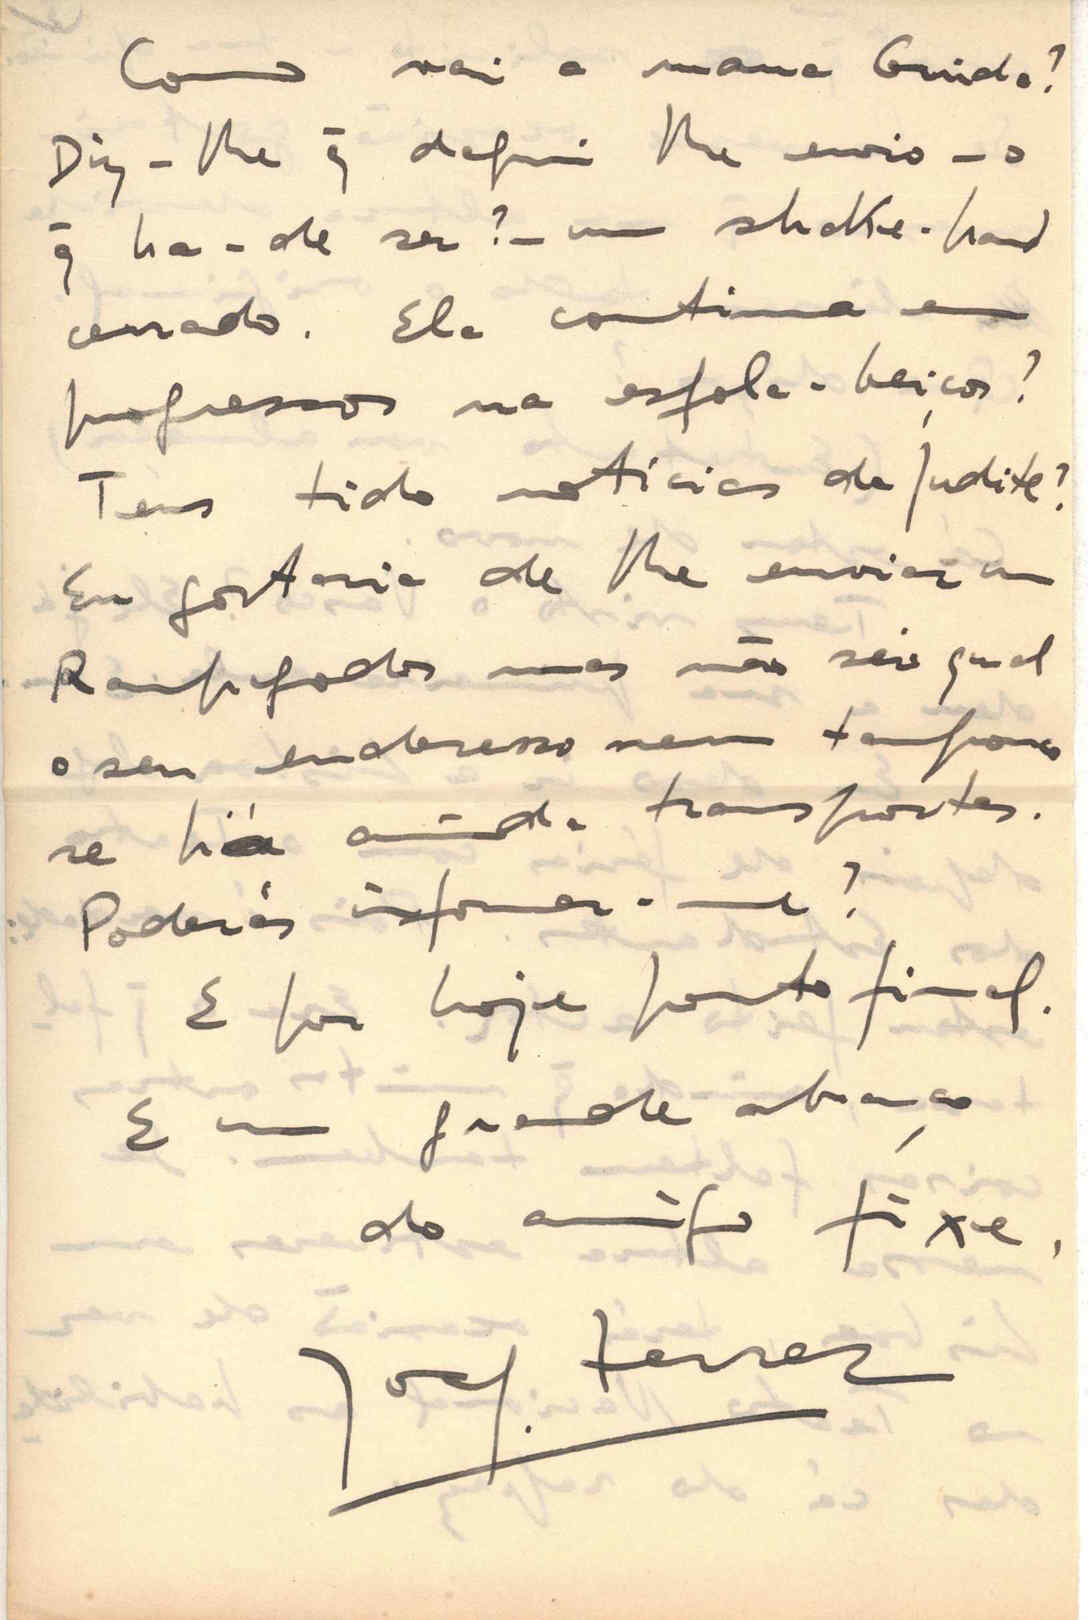 Como vai a mana Guida?
Diz-lhe q̃ daqui lhe envio - o
q̃ ha-de ser? - um shake-hand
cerrado. Ela continua em
progressos na esfola-beiços?
Tens tido notícias da Judite?
Eu gostaria de lhe enviar um
mas não sei qual
o seu enderesso nem tampouco
se há ainda transportes.
Poderás informar-me?
E por hoje ponto final.
E um grande abraço
do amigo fixe,
Joaq. Ferrer